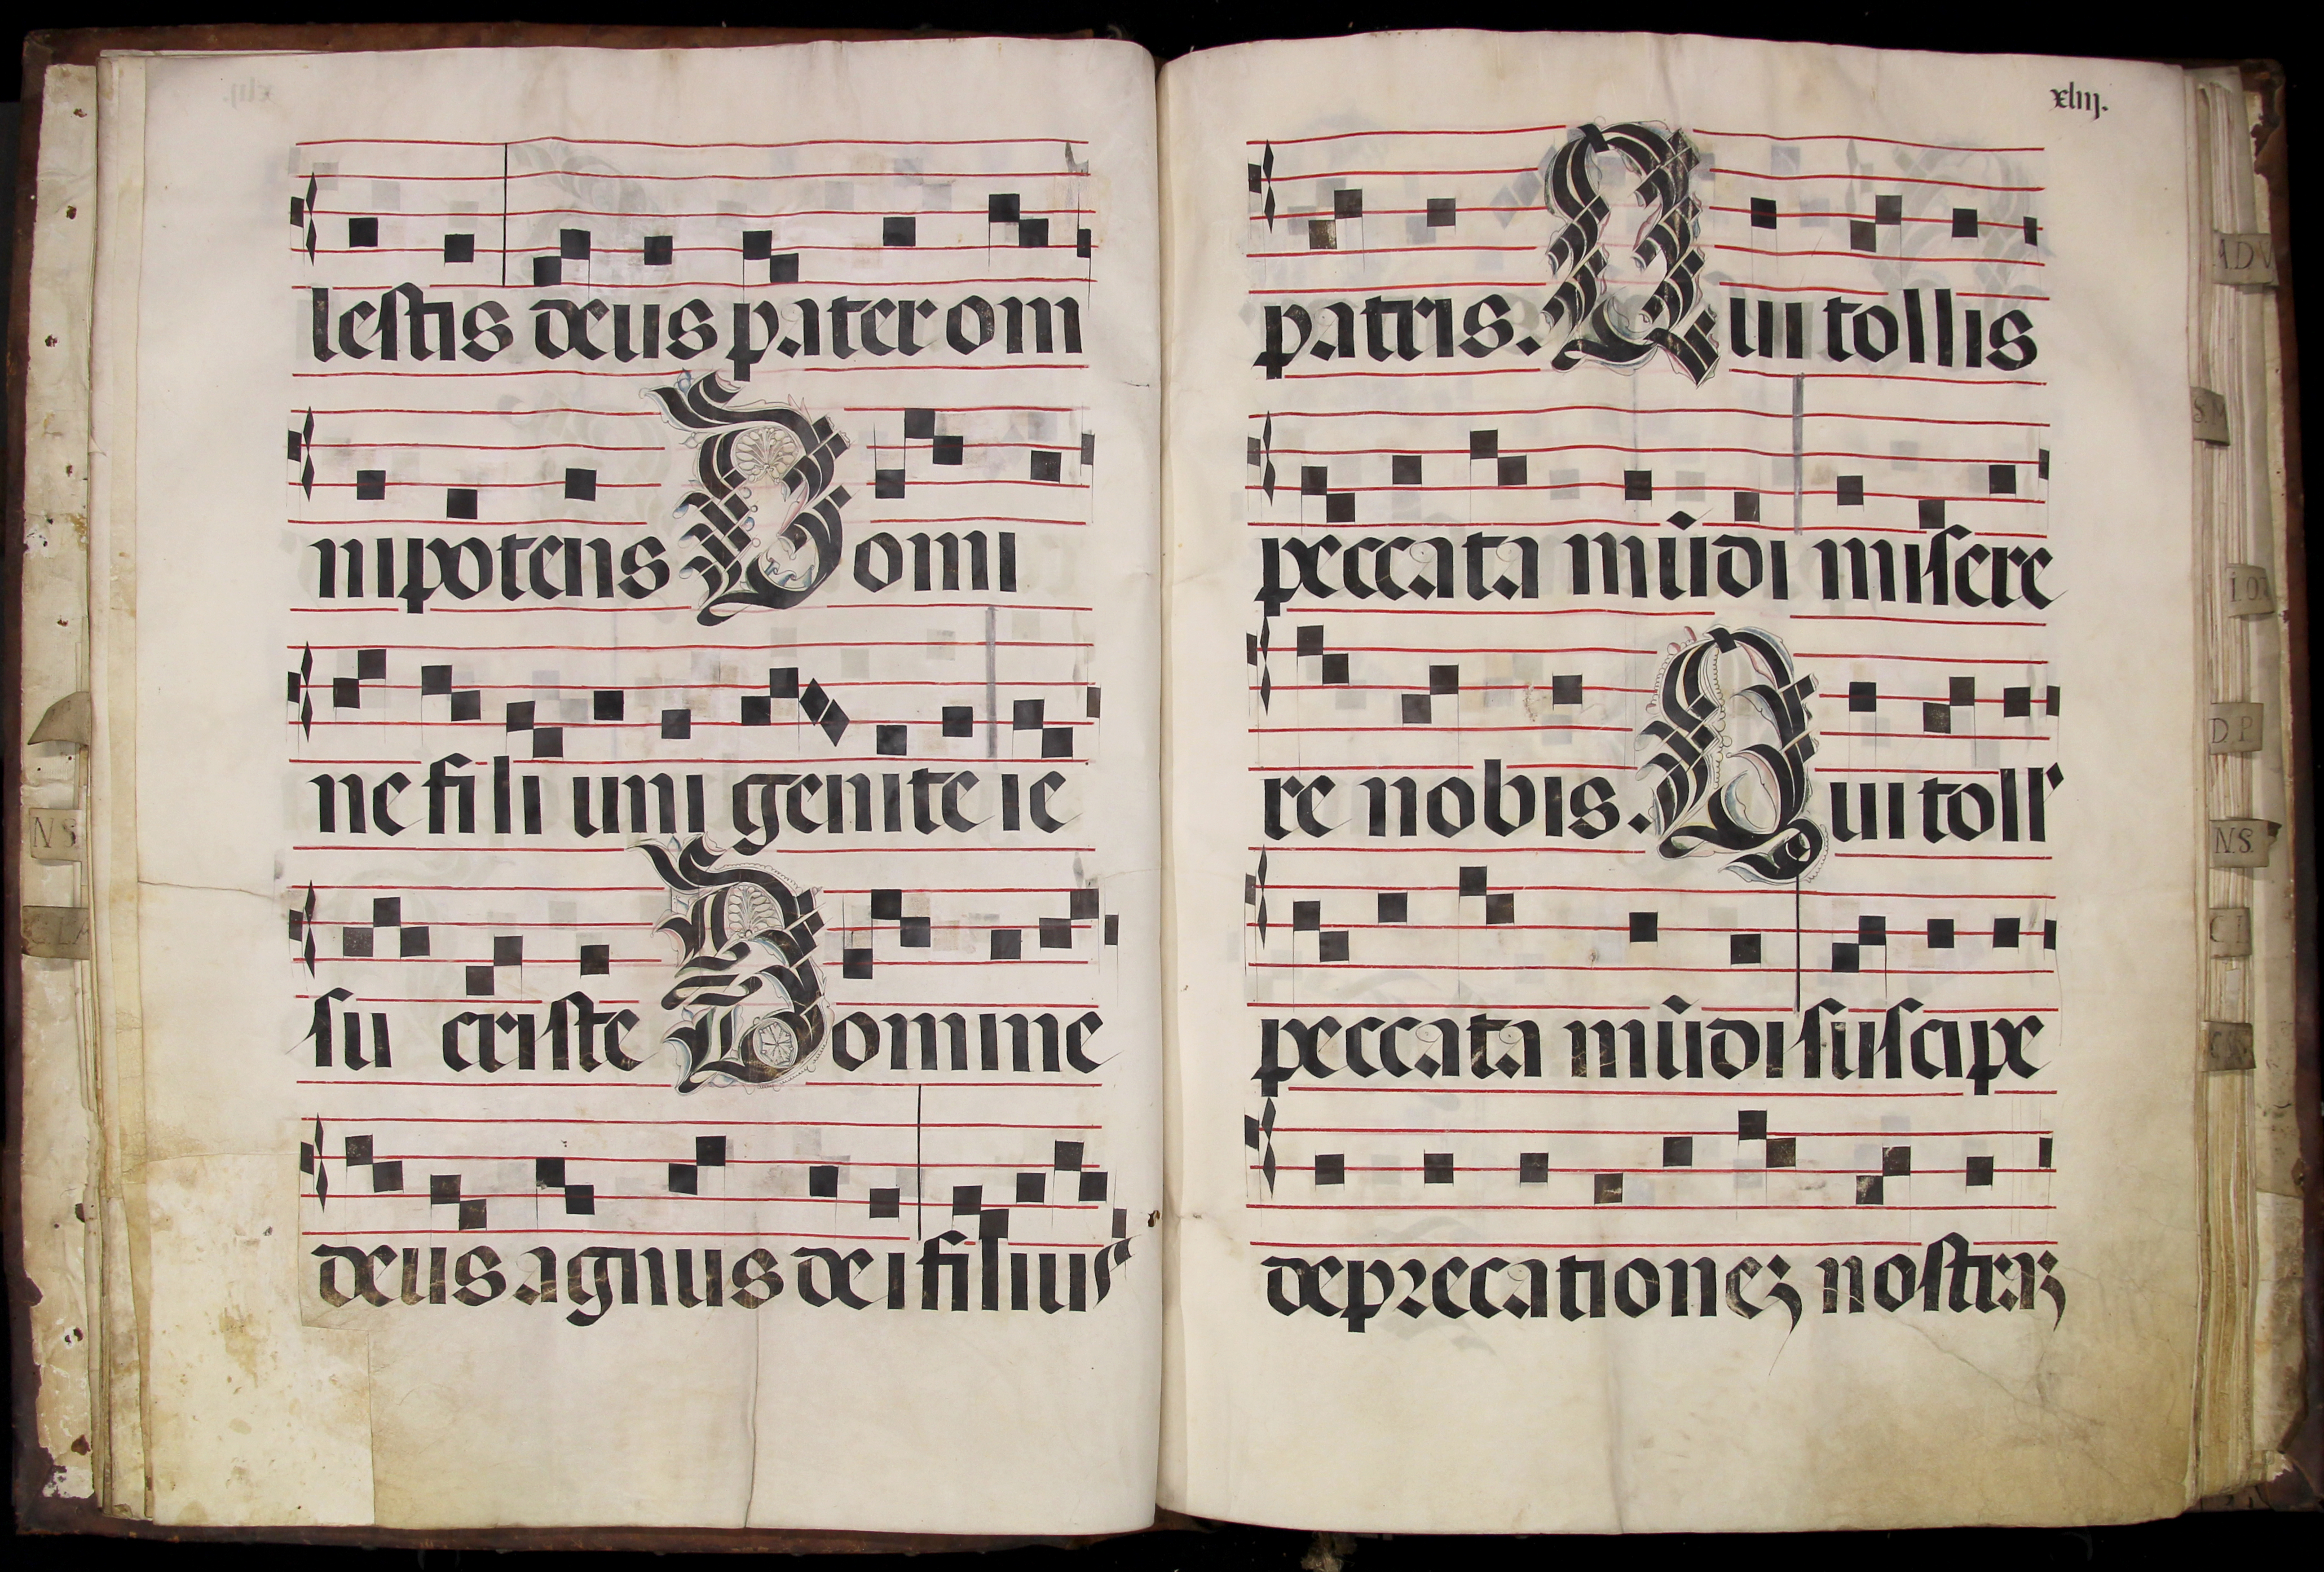 lestis deus pater om
nipotens Domi
ne fili uni genite ie
su criste Domine
deus agnus dei filius
xliij.
patris. Qui tollis
peccata mũdi misere
re nobis. Qui toll'
peccata mũdi suscipe
deprecationeʒ nostraʒ
ADV
S.M
D P
N.S.
N S
C L A